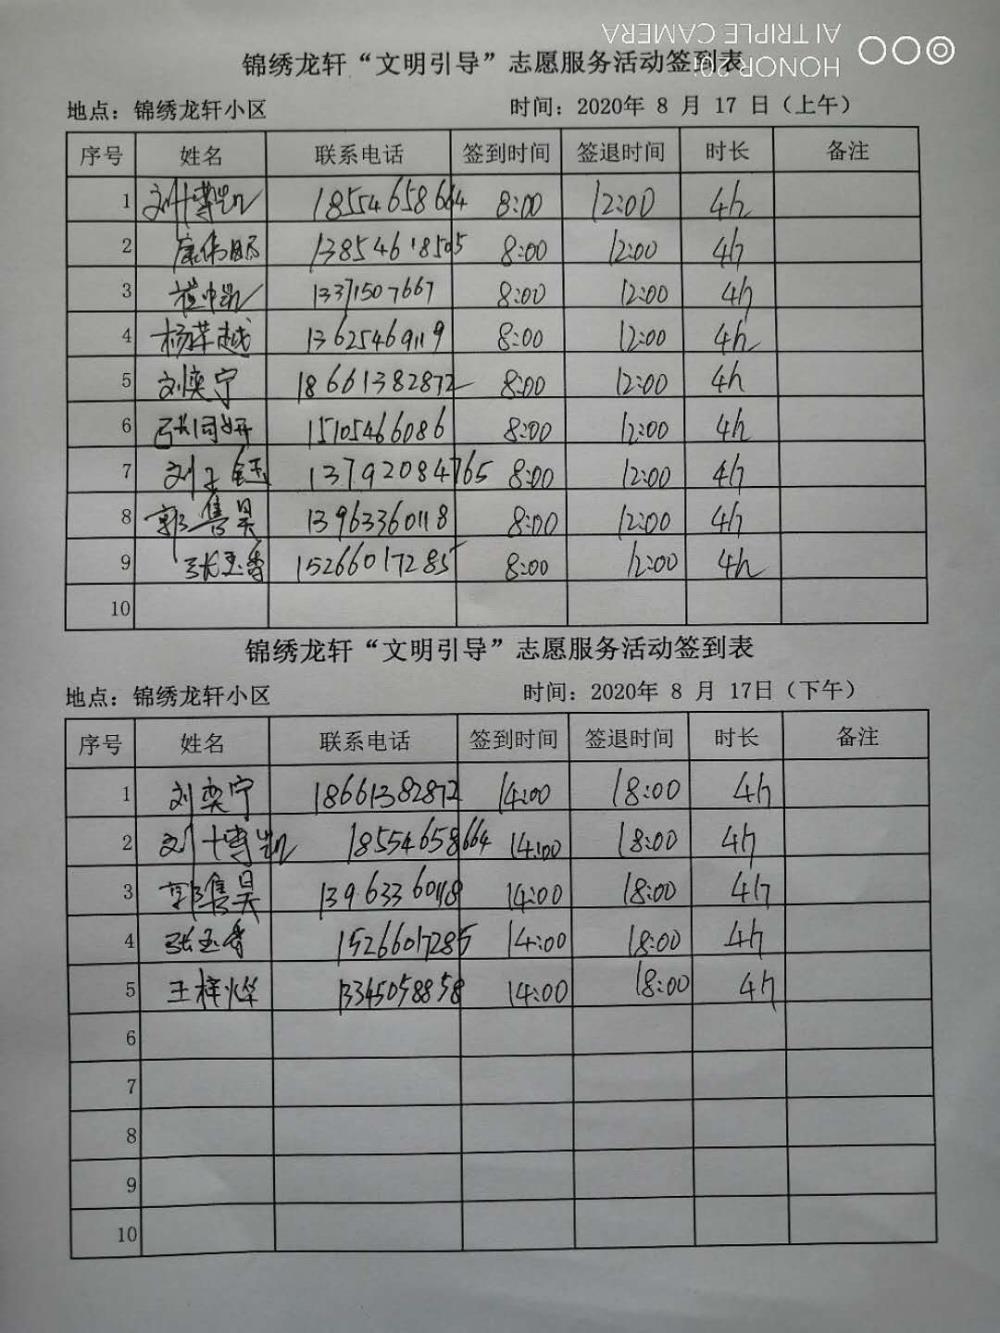 AI TRIPLE CAMERA
HONOR 20i
锦绣龙轩“文明引导”志愿服务活动签到表
地点：锦绣龙轩小区 时间：2020年 8 月 17 日（上午）
序号 姓名 联系电话 签到时间 签退时间 时长 备注
1 刘博凯 18554658664 8:00 12:00 4h
2 13854618505 8:00 12:00 4h
3 13371507667 8:00 12:00 4h
4 杨荣越 13625469119 8:00 12:00 4h
5 刘奕宁 18661382872 8:00 12:00 4h
6 15105466086 8:00 12:00 4h
7 刘子钰 13792084765 8:00 12:00 4h
8 郭隽昊 13963360118 8:00 12:00 4h
9 张玉香 15266017285 8:00 12:00 4h
10
锦绣龙轩“文明引导”志愿服务活动签到表
地点：锦绣龙轩小区 时间：2020年 8 月 17日（下午）
序号 姓名 联系电话 签到时间 签退时间 时长 备注
1 刘奕宁 18661382872 14:00 18:00 4h
2 刘博凯 18554658664 14:00 18:00 4h
3 郭隽昊 13963360118 14:00 18:00 4h
4 张玉香 15266017285 14:00 18:00 4h
5 王梓烨 13345058858 14:00 18:00 4h
6
7
8
9
10